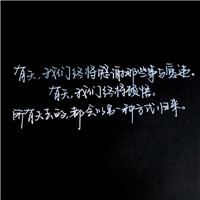 有天,我们终将感谢那些梦与
有天,我们终将领悟。
所有失去的,都会以另一种方式归来。